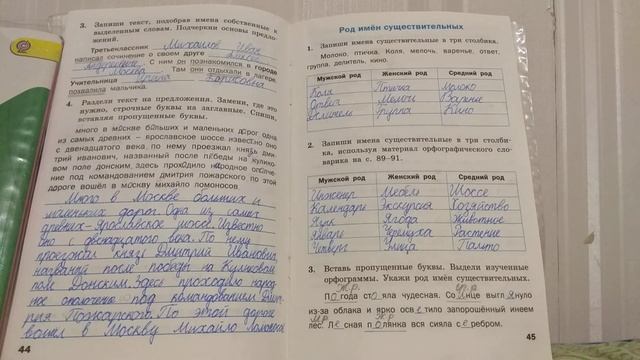 3. Запиши текст, подобрав имена собственные к
выделенным словам. Подчеркни основы предло-
жений.
Третьеклассник Михайлов Иван
написал сочинение о своем друге
Андреевиче. С ним он познакомился в городе
Москва. Там они отдыхали в лагере.
Учительница Ирина
похвалила мальчика.
4. Раздели текст на предложения. Замени, где это
нужно, строчные буквы на заглавные. Спиши,
вставляя пропущенные буквы.
много в москве больших и маленьких дорог одна
из самых древних – ярославское шоссе известно оно
с двенадцатого века по нему проезжал князь дми-
трий иванович, названный после победы на кулико-
вом поле донским здесь проходило народное ополче-
ние под командованием дмитрия пожарского по этой
дороге вошёл в москву михайло ломоносов
Много в Москве больших и
маленьких дорог. Одна из самых
древних – Ярославское шоссе. Известно
оно с двенадцатого века. По нему
проезжал князь Дмитрий Иванович,
названный после победы на Куликовом
поле Донским. Здесь проходило народ-
ное ополчение под командованием Дмит-
рия Пожарского. По этой дороге
вошел в Москву Михайло Ломоносов
44
Род имён существительных
1. Запиши имена существительные в три столбика.
Молоко, птичка, Коля, мелочь, варенье, ответ,
группа, делитель, кино.
Мужской род Женский род Средний род
Коля Птичка Молоко
Ответ Мелочь Варенье
Делитель Группа Кино
2. Запиши имена существительные в три столби-
ка, используя материал орфографического сло-
варика на с. 89–91.
Мужской род Женский род Средний род
Инженер Мебель Шоссе
Календарь Экскурсия Хозяйство
Язык Ягода Животное
Январь Черемуха Растение
Четверг Улица Пальто
3. Вставь пропущенные буквы. Выдели изученные
орфограммы. Укажи род имён существительных.
ж.р. ср.р.
Погода стояла чудесная. Солнце выглянуло
из-за облака и ярко осветило запорошённый инеем
м.р. ж.р.
лес. Лесная полянка вся сияла серебром.
45